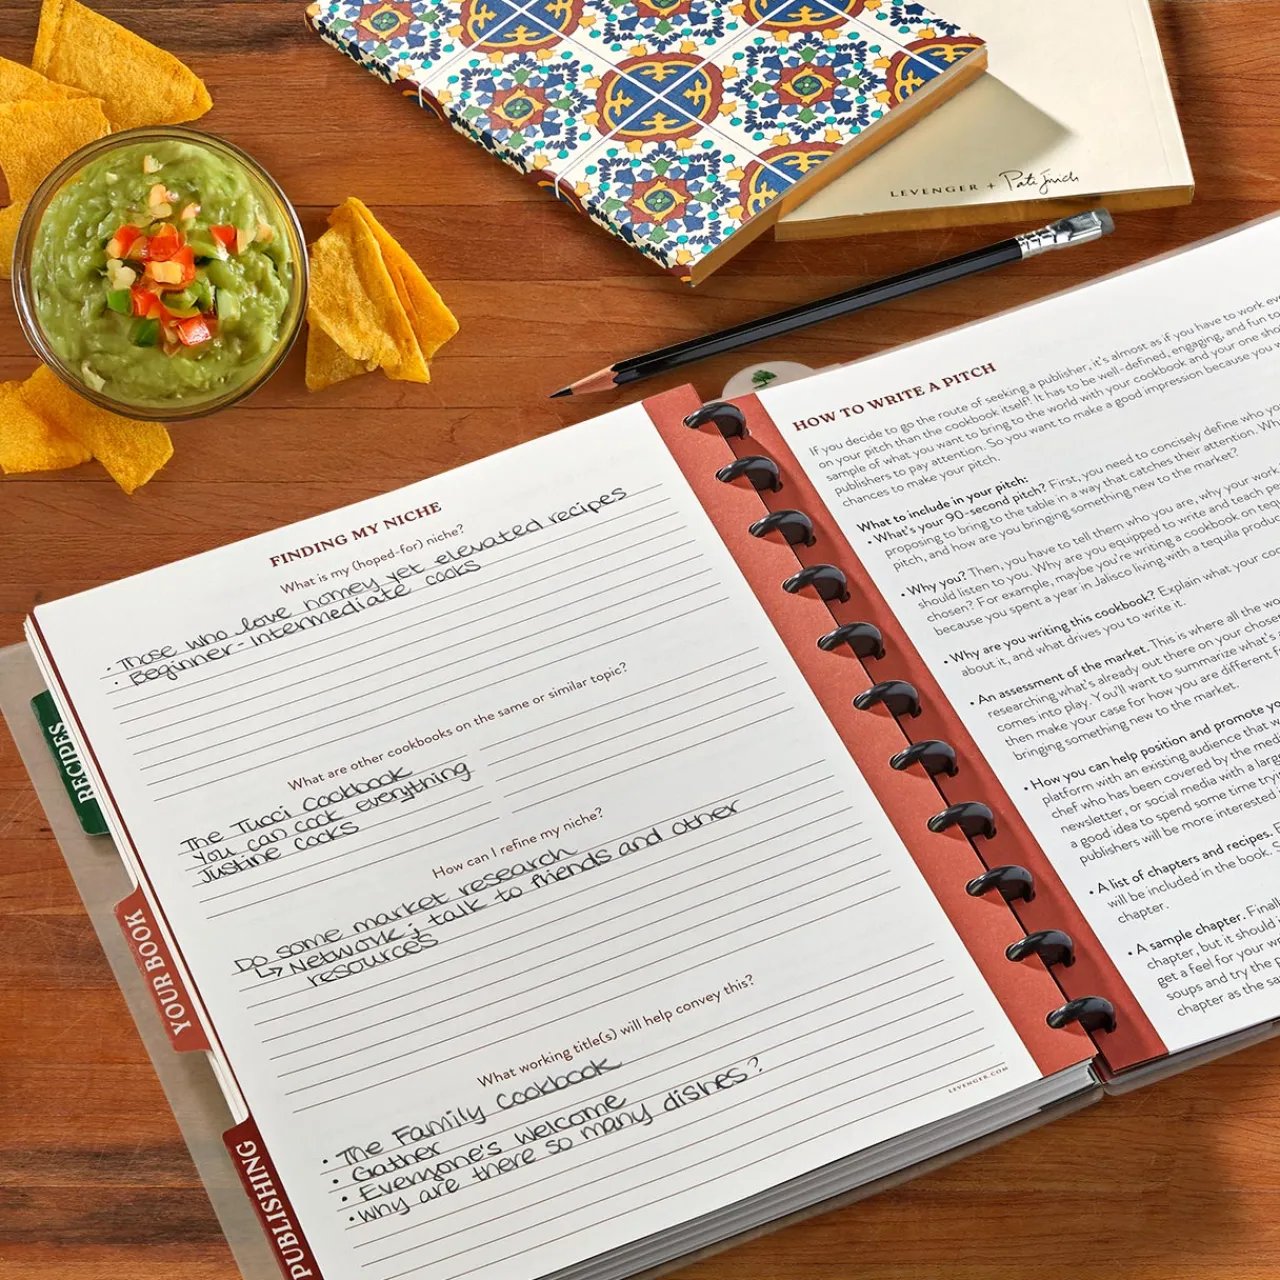 LEVENGER + Pati Jinich
RECIPES
YOUR BOOK
PUBLISHING
FINDING MY NICHE
What is my (hoped-for) niche?
• Those who love homey yet elevated recipes
• Beginner-Intermediate cooks
What are other cookbooks on the same or similar topic?
The Tucci Cookbook
You can cook everything
Justine cooks
How can I refine my niche?
Do some market research
↳ Network; talk to friends and other
resources
What working title(s) will help convey this?
• The Family Cookbook
• Gather
• Everyone's Welcome
• Why are there so many dishes?
LEVENGER.COM
HOW TO WRITE A PITCH
If you decide to go the route of seeking a publisher, it's almost as if you have to work
on your pitch than the cookbook itself! It has to be well-defined, engaging, and fun to
sample of what you want to bring to the world with your cookbook and your one
publishers to pay attention. So you want to make a good impression because you
chances to make your pitch.
What to include in your pitch:
• What's your 90-second pitch? First, you need to concisely define who
proposing to bring to the table in a way that catches their attention.
pitch, and how are you bringing something new to the market?
• Why you? Then, you have to tell them who you are, why your work
should listen to you. Why are you equipped to write and teach
chosen? For example, maybe you're writing a cookbook on
because you spent a year in Jalisco living with a tequila
• Why are you writing this cookbook? Explain what your
about it, and what drives you to write it.
• An assessment of the market. This is where all the
researching what's already out there on your chosen
comes into play. You'll want to summarize what's
then make your case for how you are different
bringing something new to the market.
• How you can help position and promote
platform with an existing audience that
chef who has been covered by the
newsletter, or social media with a large
a good idea to spend some time
publishers will be more interested
• A list of chapters and recipes.
will be included in the book.
chapter.
• A sample chapter.
chapter, but it should
get a feel for your
soups and try the
chapter as the